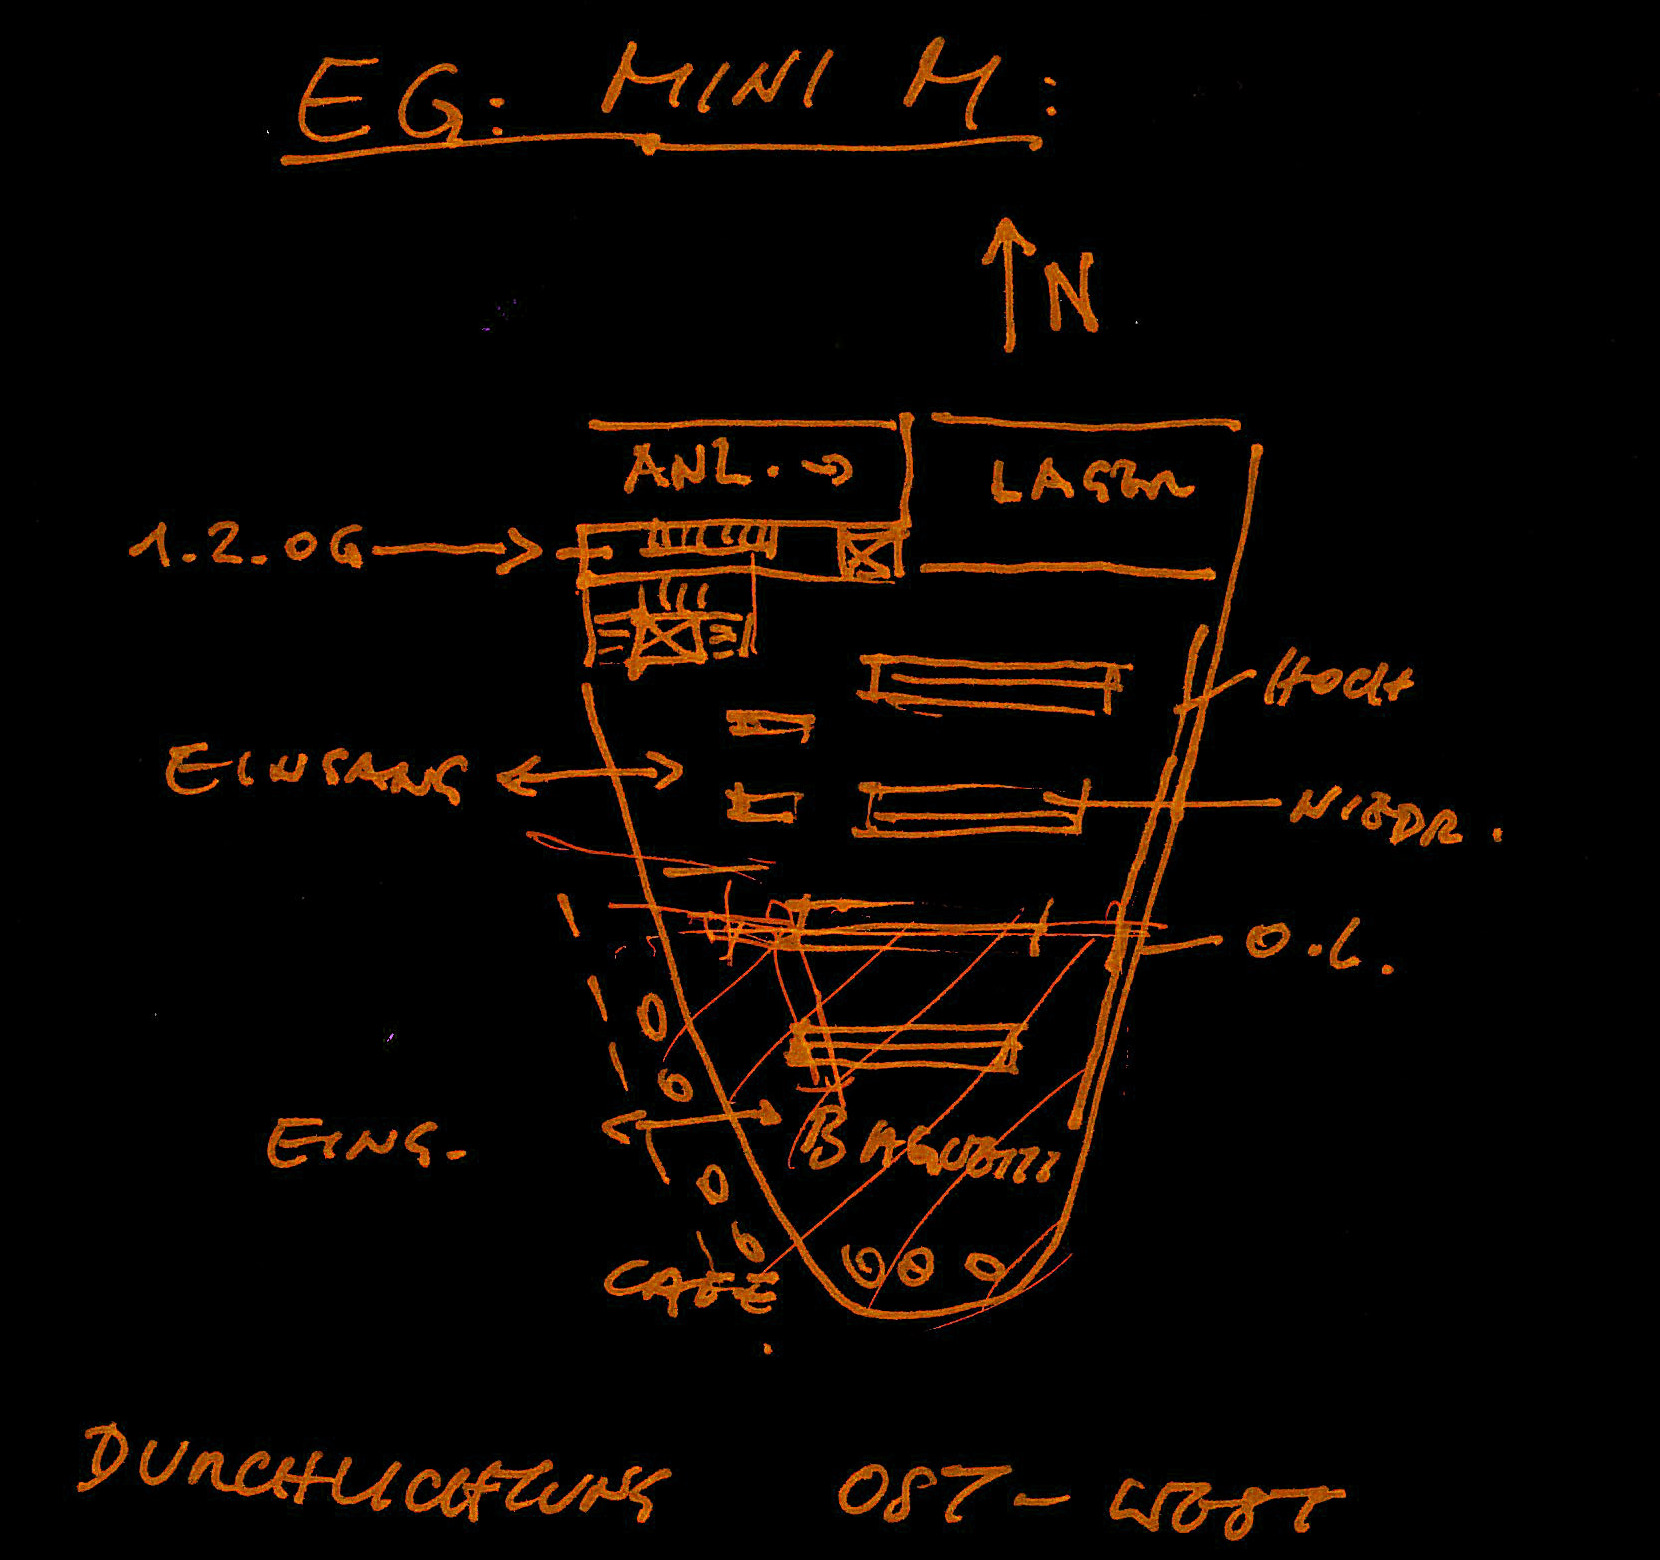 EG: MINI M:
N
ANL. →
LAGER
1.2.OG
HOCH
EINGANG
NIEDR.
O.L.
EING.
BAGUETTE
CAFE
DURCHLICHTUNG OST - WEST